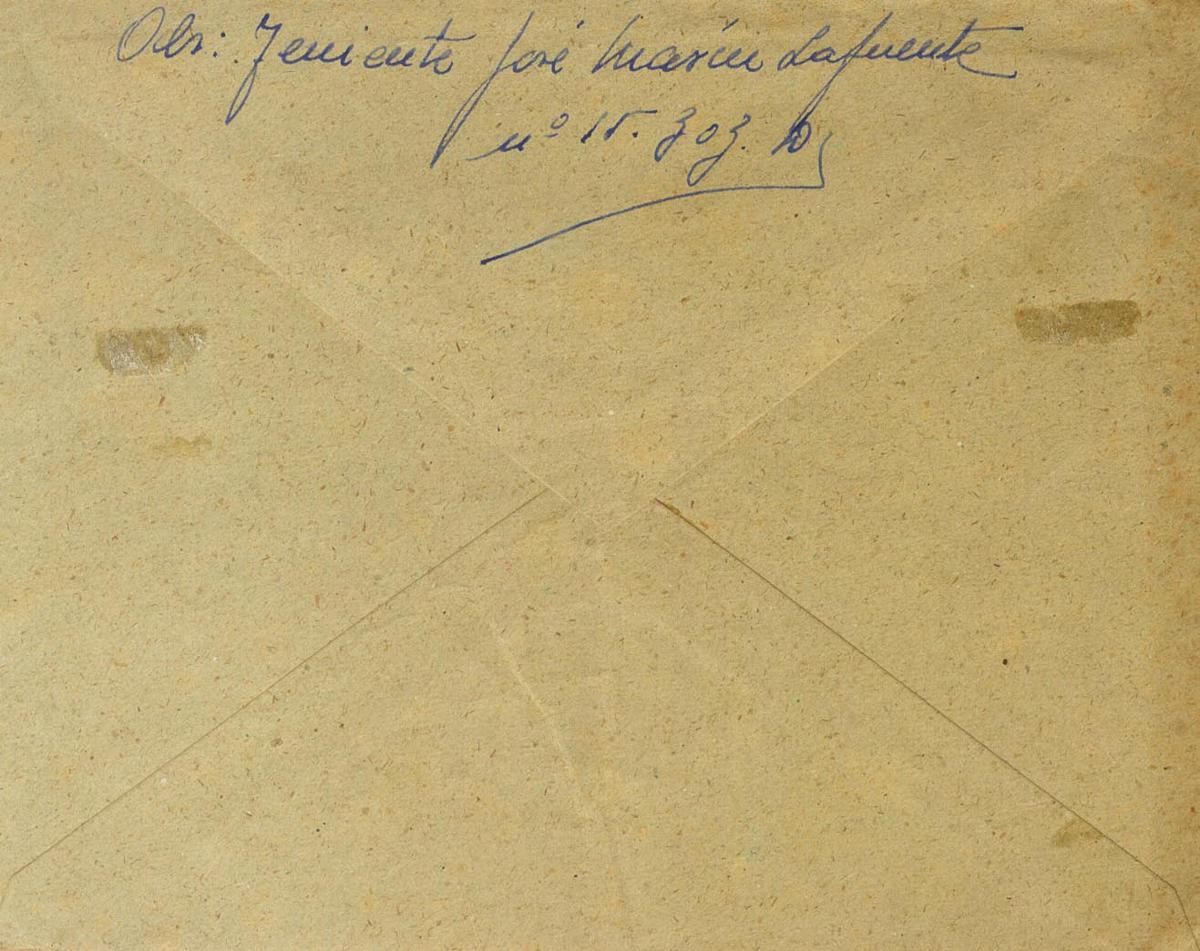 Obs: Teniente José Marín Lafuente
nº 15.303. D